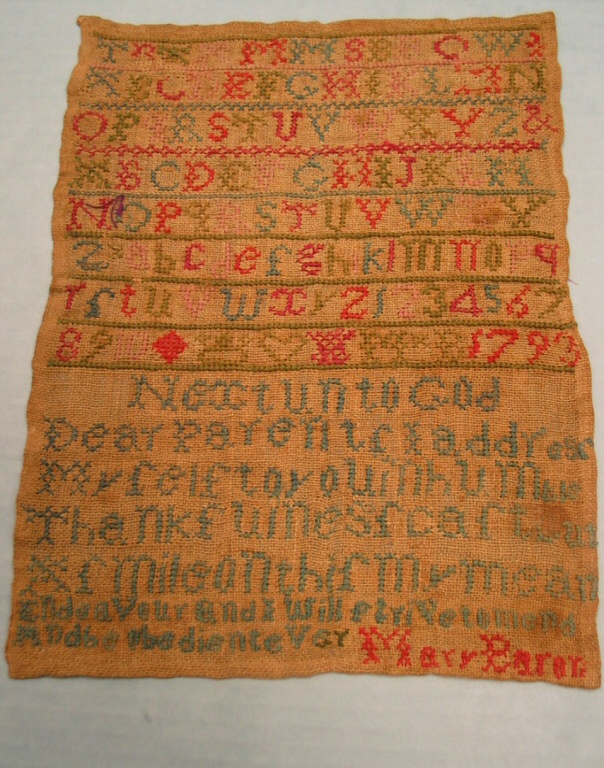 M M S E C W &
A B C E F G H I K L M N
O P R S T U V X Y Z &
A B C D E G H I J K L M
N O P S T U V W Y
Z b c d e f g h k l m n o p q
r ſ t u v w x y z 1 2 3 4 5 6 7
8 9 1793
Next unto God
Dear Parentſ I addreſs
My ſelf to you in Humble
Thankfulneſſ caſt but
A ſmile on thiſ my mean
Endeavour and I will ſtrive to mend
And be obedient ever Mary Baron